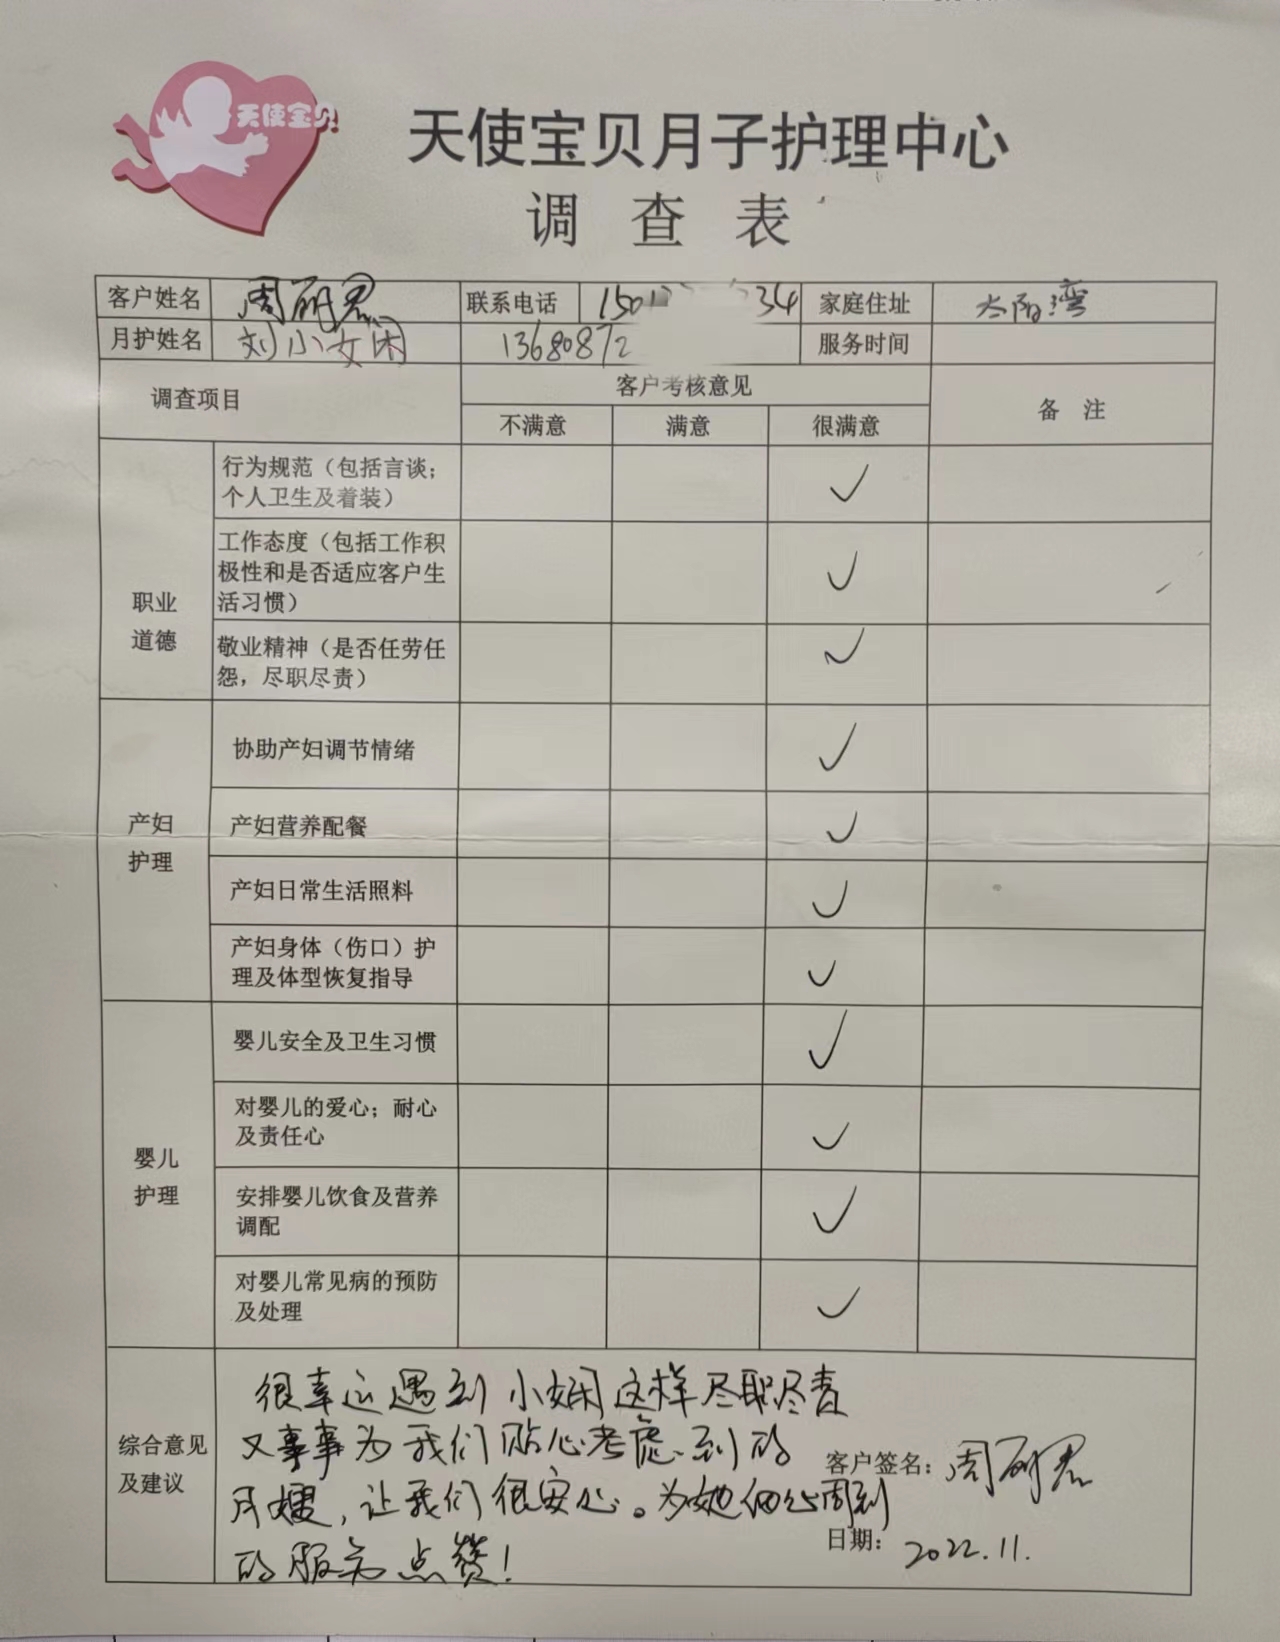 天使宝贝
天使宝贝月子护理中心
调查表
客户姓名 周 联系电话 150 34 家庭住址 太阳湾
月护姓名 刘小娴 13680872 服务时间
调查项目 客户考核意见 备注
不满意 满意 很满意
职业
道德
行为规范（包括言谈；
个人卫生及着装） ✓
工作态度（包括工作积
极性和是否适应客户生
活习惯） ✓
敬业精神（是否任劳任
怨，尽职尽责） ✓
产妇
护理
协助产妇调节情绪 ✓
产妇营养配餐 ✓
产妇日常生活照料 ✓
产妇身体（伤口）护
理及体型恢复指导 ✓
婴儿
护理
婴儿安全及卫生习惯 ✓
对婴儿的爱心；耐心
及责任心 ✓
安排婴儿饮食及营养
调配 ✓
对婴儿常见病的预防
及处理 ✓
综合意见
及建议
很幸运遇到小娴这样尽职尽责
又事事为我们贴心考虑到的
月嫂，让我们很安心。为她细心周到
的服务点赞！
客户签名：周
日期：2022.11.